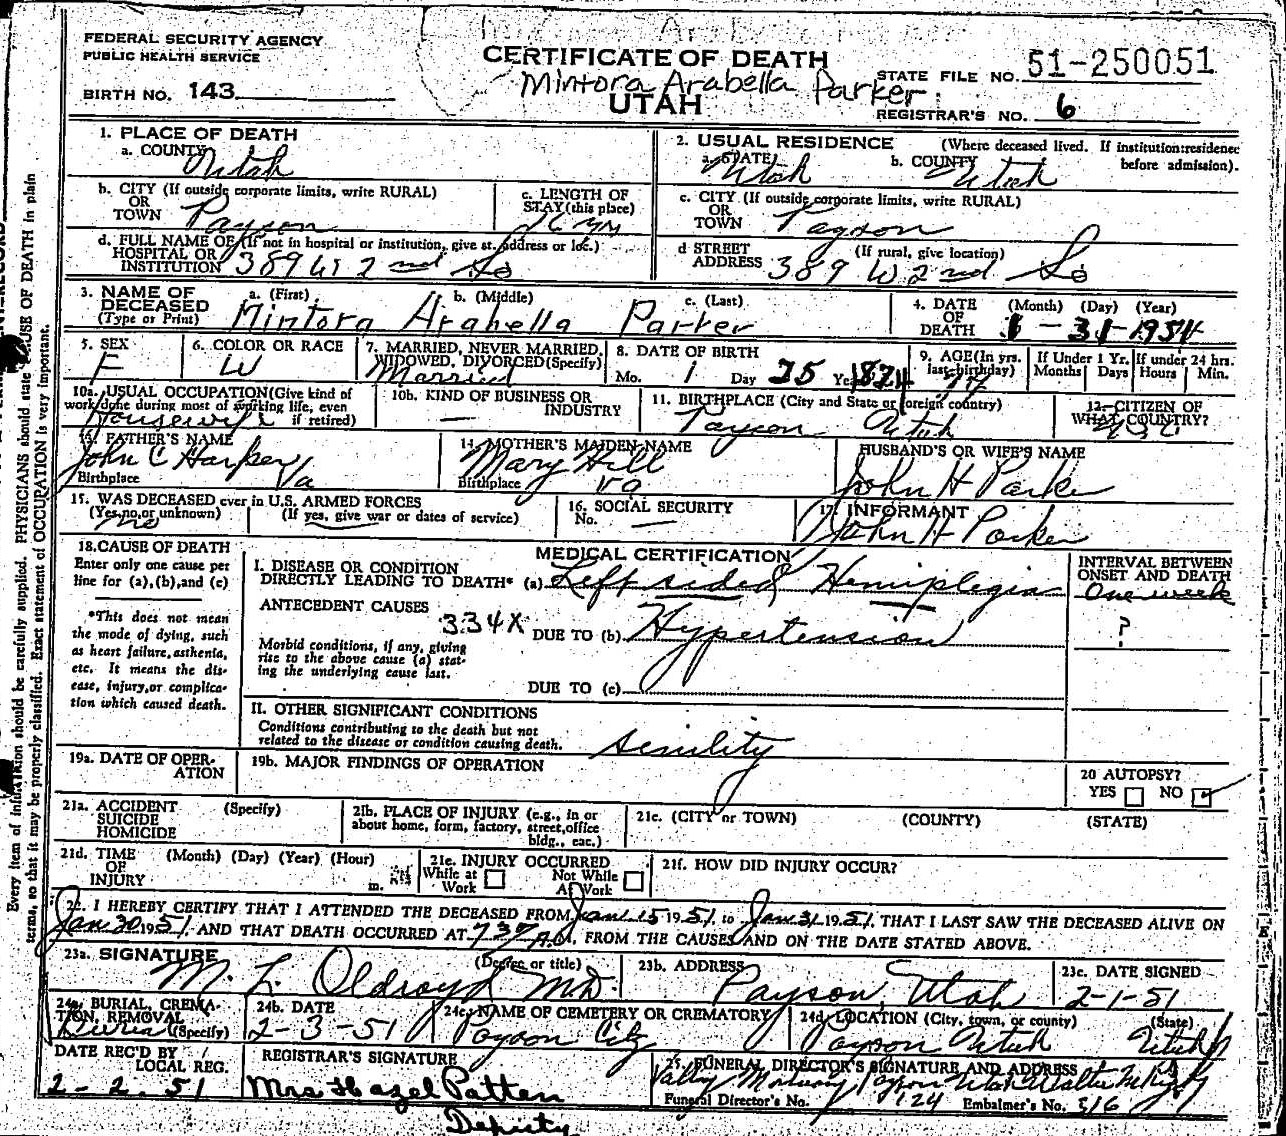 FEDERAL SECURITY AGENCY
PUBLIC HEALTH SERVICE
BIRTH NO. 143
CERTIFICATE OF DEATH
Mintora Arabella Parker
UTAH
STATE FILE NO. 51-250051
REGISTRAR'S NO. 6
1. PLACE OF DEATH
a. COUNTY Utah
2. USUAL RESIDENCE (Where deceased lived. If institution:residence before admission).
a. STATE Utah b. COUNTY Utah
b. CITY (If outside corporate limits, write RURAL)
OR
TOWN Payson
c. LENGTH OF
STAY (this place)
c. CITY (If outside corporate limits, write RURAL)
OR
TOWN Payson
d. FULL NAME OF (If not in hospital or institution, give st. address or loc.)
HOSPITAL OR
INSTITUTION 389 W 2nd So
d STREET (If rural, give location)
ADDRESS 389 W 2nd So
3. NAME OF DECEASED
(Type or Print)
a. (First) b. (Middle) c. (Last)
Mintora Arabella Parker
4. DATE OF DEATH (Month) (Day) (Year)
1-31-1951
5. SEX
F
6. COLOR OR RACE
W
7. MARRIED, NEVER MARRIED,
WIDOWED, DIVORCED(Specify)
Married
8. DATE OF BIRTH
Mo. 1 Day 25 Year
9. AGE(In yrs. last birthday)
If Under 1 Yr. Months Days
If under 24 hrs. Hours Min.
10a. USUAL OCCUPATION(Give kind of
work done during most of working life, even
if retired)
Housewife
10b. KIND OF BUSINESS OR
INDUSTRY
—
11. BIRTHPLACE (City and State or foreign country)
Payson Utah
12. CITIZEN OF
WHAT COUNTRY?
13. FATHER'S NAME
John C Harper
Birthplace Va
14. MOTHER'S MAIDEN NAME
Mary Hill
Birthplace Va
HUSBAND'S OR WIFE'S NAME
John H Parker
15. WAS DECEASED ever in U.S. ARMED FORCES
(Yes,no,or unknown) (If yes, give war or dates of service)
no
16. SOCIAL SECURITY
No. —
17. INFORMANT
John H Parker
18.CAUSE OF DEATH
Enter only one cause per
line for (a),(b),and (c)
*This does not mean
the mode of dying, such
as heart failure,asthenia,
etc. It means the dis-
ease, injury,or complica-
tion which caused death.
MEDICAL CERTIFICATION
I. DISEASE OR CONDITION
DIRECTLY LEADING TO DEATH* (a) Left sided Hemiplegia
ANTECEDENT CAUSES
334X DUE TO (b) Hypertension
Morbid conditions, if any, giving
rise to the above cause (a) stat-
ing the underlying cause last.
DUE TO (c)
INTERVAL BETWEEN
ONSET AND DEATH
One week
?
II. OTHER SIGNIFICANT CONDITIONS
Conditions contributing to the death but not
related to the disease or condition causing death. senility
19a. DATE OF OPER-
ATION
19b. MAJOR FINDINGS OF OPERATION
20 AUTOPSY?
YES NO
21a. ACCIDENT (Specify)
SUICIDE
HOMICIDE
21b. PLACE OF INJURY (e.g., in or
about home, form, factory, street,office
bldg., eac.)
21c. (CITY or TOWN) (COUNTY) (STATE)
21d. TIME (Month) (Day) (Year) (Hour)
OF
INJURY m.
21e. INJURY OCCURRED
While at Work Not While At Work
21f. HOW DID INJURY OCCUR?
22. I HEREBY CERTIFY THAT I ATTENDED THE DECEASED FROM Jan. 15 1951, to Jan. 31 1951, THAT I LAST SAW THE DECEASED ALIVE ON
Jan 30 1951. AND THAT DEATH OCCURRED AT A.M, FROM THE CAUSES AND ON THE DATE STATED ABOVE.
23a. SIGNATURE (Degree or title)
M. L. Oldroyd M.D.
23b. ADDRESS
Payson, Utah
23c. DATE SIGNED
2-1-51
24a. BURIAL, CREMA-
TION, REMOVAL
(Specify)
Burial
24b. DATE
2-3-51
24c. NAME OF CEMETERY OR CREMATORY
Payson City
24d. LOCATION (City, town, or county) (State)
Payson Utah Utah
DATE REC'D BY
LOCAL REG.
2-2.51
REGISTRAR'S SIGNATURE
Mrs Hazel Patten
Deputy
25. FUNERAL DIRECTOR'S SIGNATURE AND ADDRESS
Valley Mortuary Payson Utah Walter
Funeral Director's No. 124 Embalmer's No. 316
Every item of information should be carefully supplied. PHYSICIANS should state CAUSE OF DEATH in plain
terms, so that it may be properly classified. Exact statement of OCCUPATION is very important.